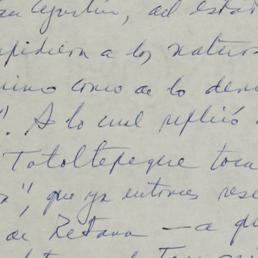 San Agustín, del esta
pidieron a los naturo
mino como de lo dem
". A lo cual replicó
Totoltepeque toca
", que ya entonces rese
de Zetana — a qu